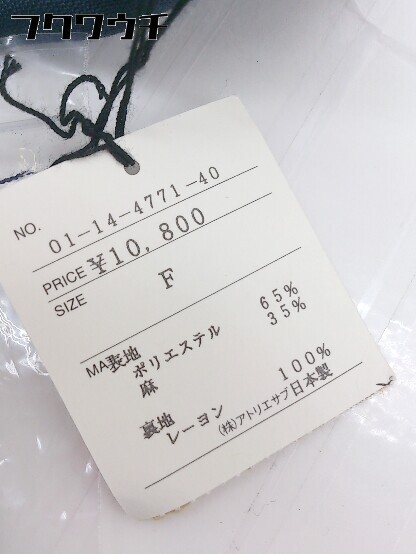 フクワウチ
NO. 01-14-4771-40
PRICE ¥10,800
SIZE F
MA表地
ポリエステル 65%
麻 35%
裏地
レーヨン 100%
(株)アトリエサブ日本製